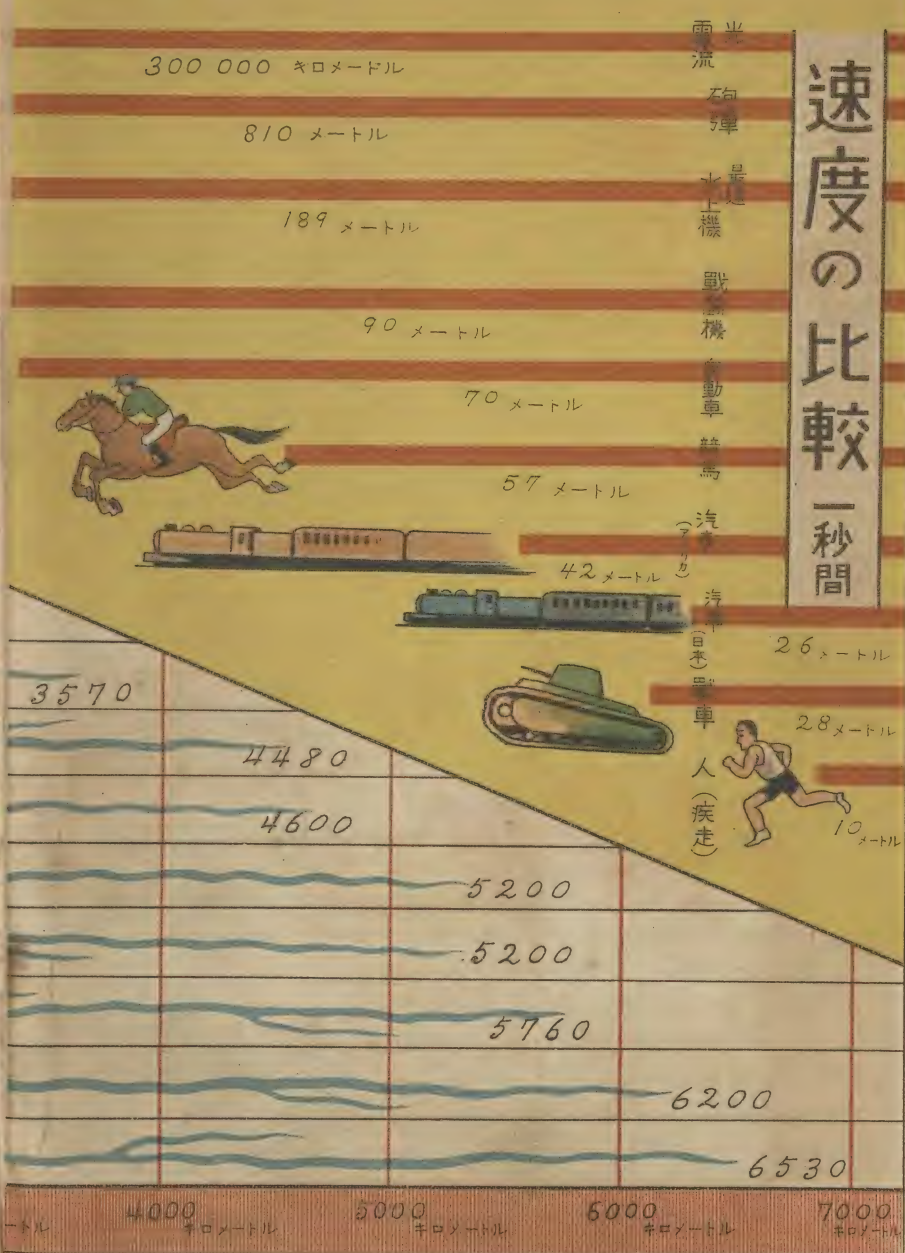 速度の比較 一秒間
光
電流
300 000 キロメートル
砲彈
810 メートル
最速
水上機
189 メートル
戰鬪機
90 メートル
自動車
70 メートル
競馬
57 メートル
汽車
(アメリカ)
42 メートル
汽車
(日本)
26 メートル
戰車
28 メートル
人(疾走)
10 メートル
3570
4480
4600
5200
5200
5760
6200
6530
ートル
4000 キロメートル
5000 キロメートル
6000 キロメートル
7000 キロメートル